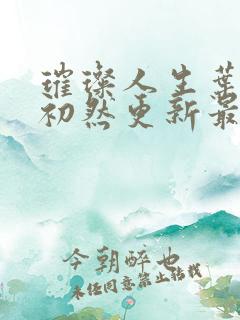 璀璨人生葉
初然更新最
今朝醉也
未经同意禁止转载